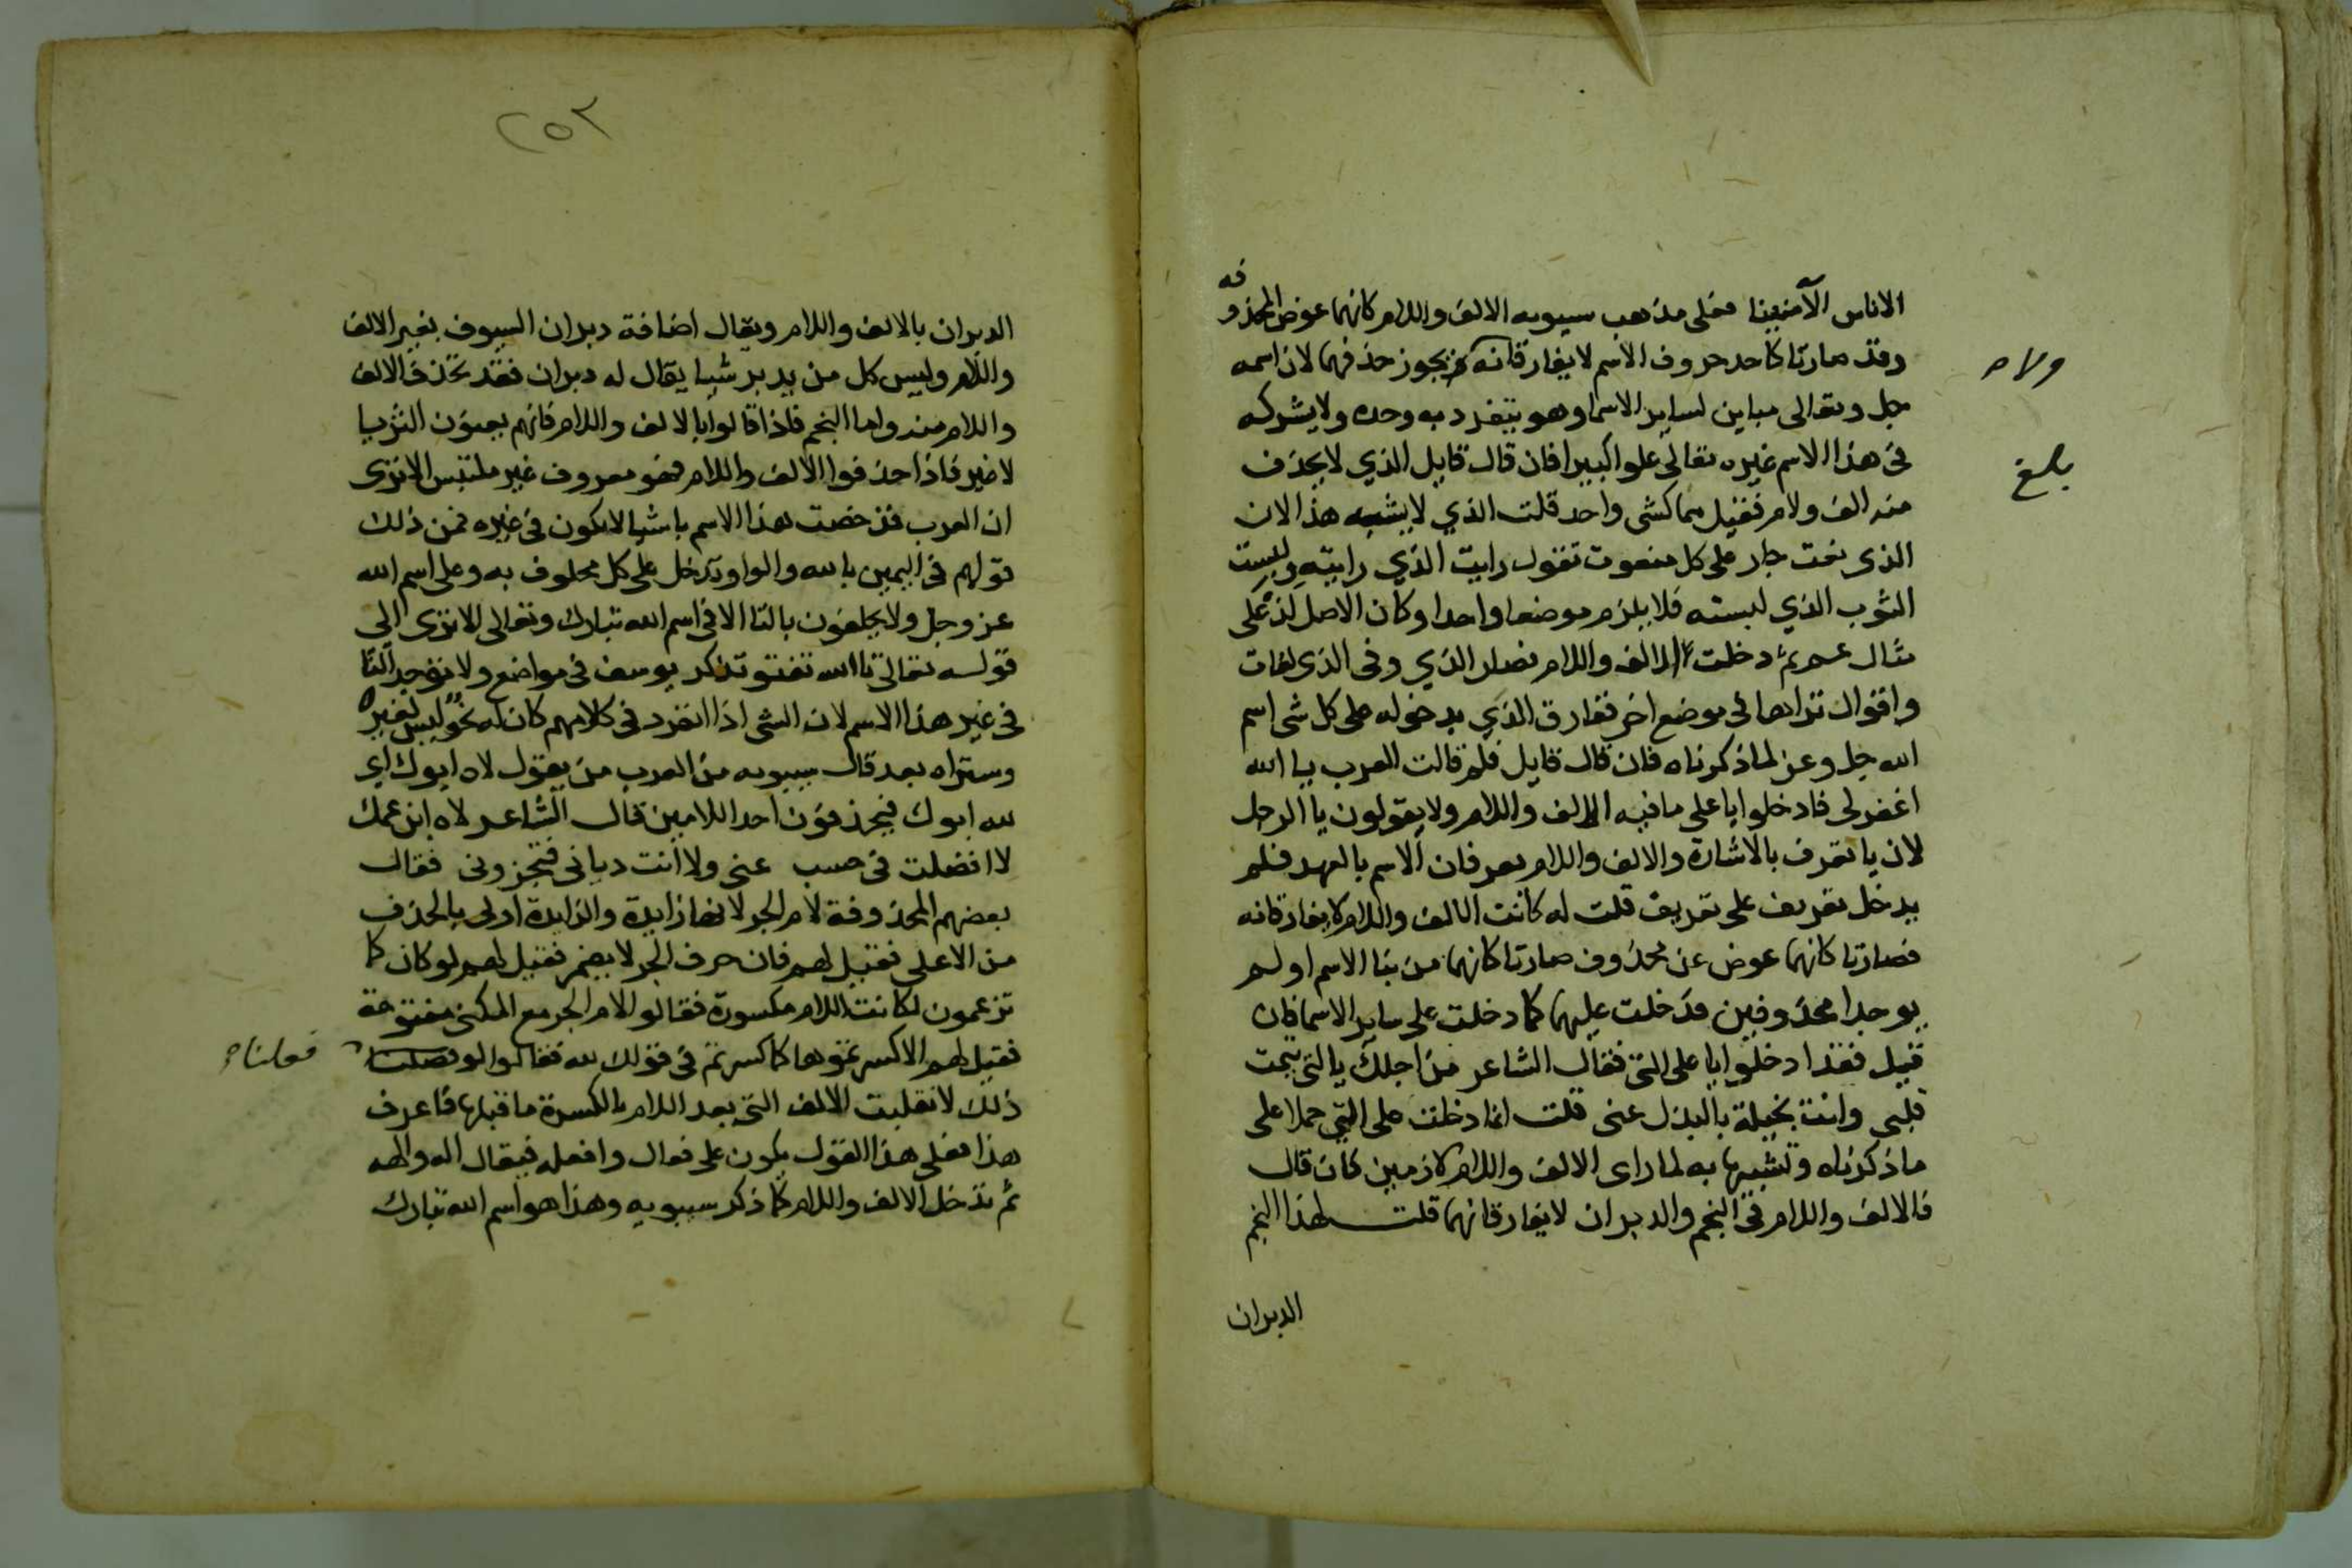 الاناس الآمنينا فعلى مذهب سيبويه الالف واللام كانهما عوض المحذو
فه
وقد صارتا كاحد حروف الاسم لا يفارقانه فيجوز حذفهما لان اسمه
ولاه
جل وتعالى مباين لساير الاسما وهو يتفرد به وحده ولا يشركه
في هذا الاسم غيره تعالى علوا كبيرا فان قال قايل الذي لا يحذف
بلغ
منه الف ولام فقيل هما كشى واحد قلت الذي لا يشبه هذا لان
الذى نعت جار على كل منعوت تقول رايت الذي رايته ولبست
الثوب الذي لبسته فلا يلزم موضعا واحدا وكان الاصل لذ على
مثال عم ثم دخلت الالف واللام فصار الذي وفى الذى لغات
واقوال تراها في موضع اخر ففارق الذي بدخوله على كل شى اسم
الله جل وعز لما ذكرناه فان قال قايل فلم قالت العرب يا الله
اغفر لى فادخلوا يا على ما فيه الالف واللام ولا يقولون يا الرجل
لان يا تعرف بالاشارة والالف واللام يعرفان الاسم بالعهد فلم
يدخل تعريف على تعريف قلت له كانت الالف واللام لا يفارقانه
فصارتا كانهما عوض عن محذوف صارتا كانهما من بنا الاسم او لم
يوجدا محذوفين فدخلت عليهما كما دخلت على ساير الاسما فان
قيل فقد ادخلوا يا على التي فقال الشاعر من اجلك يا التي تيمت
قلبى وانت بخيلة بالبذل عنى قلت انما دخلت على التي حملا على
ما ذكرناه وتشبيها به لما راى الالف واللام لازمين فان قال
فالالف واللام في النجم والدبران لا يفارقانهما قلت لهذا النجم
الدبران
٢٥٣
الدبران بالالف واللام ويقال اضافة دبران السيوف بغير الالف
واللام وليس كل من يدبر شيا يقال له دبران فقد تحذف الالف
واللام منه واما النجم فاذا قالوا بالالف واللام فانهم يعنون الثريا
لا غير فاذا حذفوا الالف واللام فهو معروف غير ملتبس الا ترى
ان العرب قد خصت هذا الاسم باشيا لا تكون في غيره فمن ذلك
قولهم في اليمين بالله والواو تدخل على كل محلوف به وعلى اسم الله
عز وجل ولا يحلفون بالتا الا في اسم الله تبارك وتعالى الا ترى الى
قوله تعالى تا الله تفتو تذكر يوسف في مواضع ولا توجد التا
في غير هذا الاسم لان الشى اذا انفرد في كلامهم كان له نحو ليس لغيره
وستراه بعد قال سيبويه من العرب من يقول لاه ابوك اى
لله ابوك فيحذفون احد اللامين قال الشاعر لاه ابن عمك
لا افضلت في حسب عنى ولا انت ديانى فتخزونى فقال
بعضهم المحذوفة لام الجر لانها زايدة والزايدة اولى بالحذف
من الاعلى فقيل لهم فان حرف الجر لا يضمر فقيل لهم لو كان كما
تزعمون لكانت اللام مكسورة فقالوا لام الجر مع المكنى مفتوحة
فقيل لهم الا كسرتموها كما كسرتم في قولك لله فقالوا لو فصلنا
فعلنا
ذلك لانقلبت الالف التي بعد اللام بالكسرة ما قبلها فاعرف
هذا فعلى هذا القول يكون على فعال وافعله فيقال اله والهه
ثم تدخل الالف واللام كما ذكر سيبويه وهذا هو اسم الله تبارك